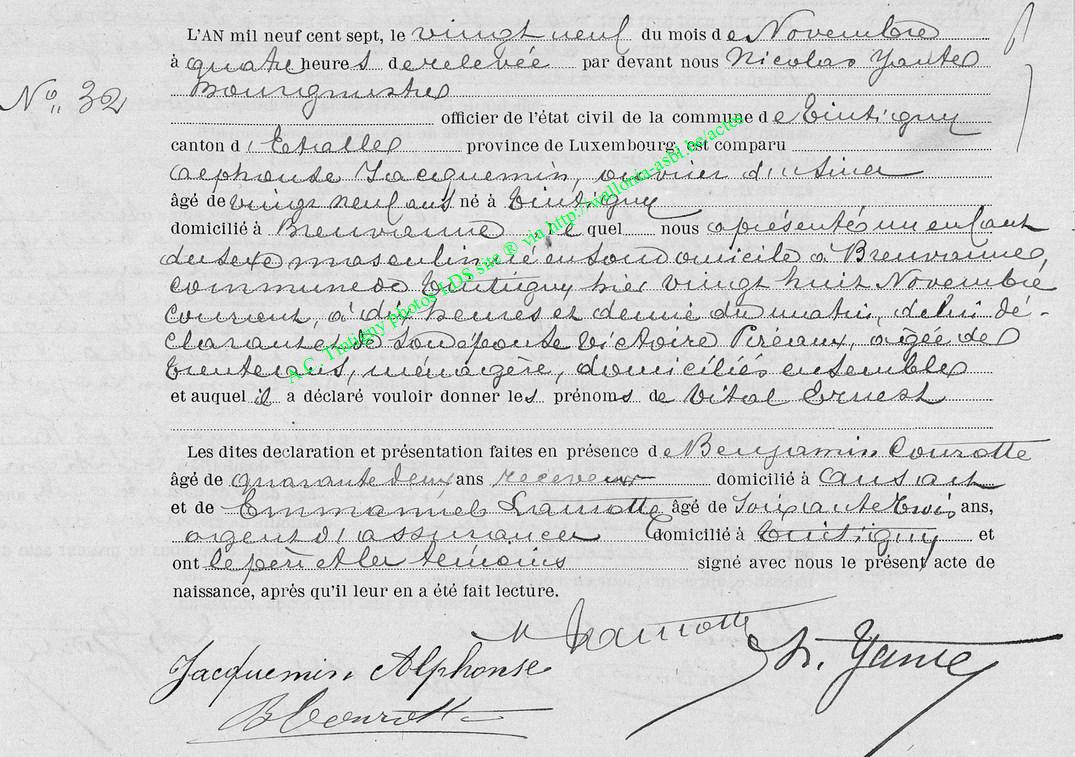 L'AN mil neuf cent sept, le vingt neuf du mois de Novembre
à quatre heures de relevée par devant nous Nicolas Yante
Bourgmestre
No 32
officier de l'état civil de la commune de Tintigny
canton d'Etalle province de Luxembourg, est comparu
Alphonse Jacquemin, ouvrier d'usine
âgé de vingt neuf ans né à Tintigny
domicilié à Breuvanne, lequel nous a présenté un enfant
du sexe masculin né en son domicile à Breuvanne,
commune de Tintigny hier vingt huit Novembre
courant, à dix heures et demie du matin, de lui dé-
clarant et de son épouse Victoire Piréaux, âgée de
trente ans, ménagère, domiciliés ensemble
et auquel il a déclaré vouloir donner les prénoms de Vital Ernest
Les dites declaration et présentation faites en présence de Benjamin Courotte
âgé de quarante deux ans receveur domicilié à Ansart
et de Emmanuel Lamotte âgé de soixante trois ans,
agent d'assurance domicilié à Tintigny et
ont le père et les témoins signé avec nous le présent acte de
naissance, après qu'il leur en a été fait lecture.
Lamotte
Jacquemin Alphonse
N. Yante
B Courotte
A.C. Tintigny photos LDS site ® via http://wallonia-asbl.be/actes